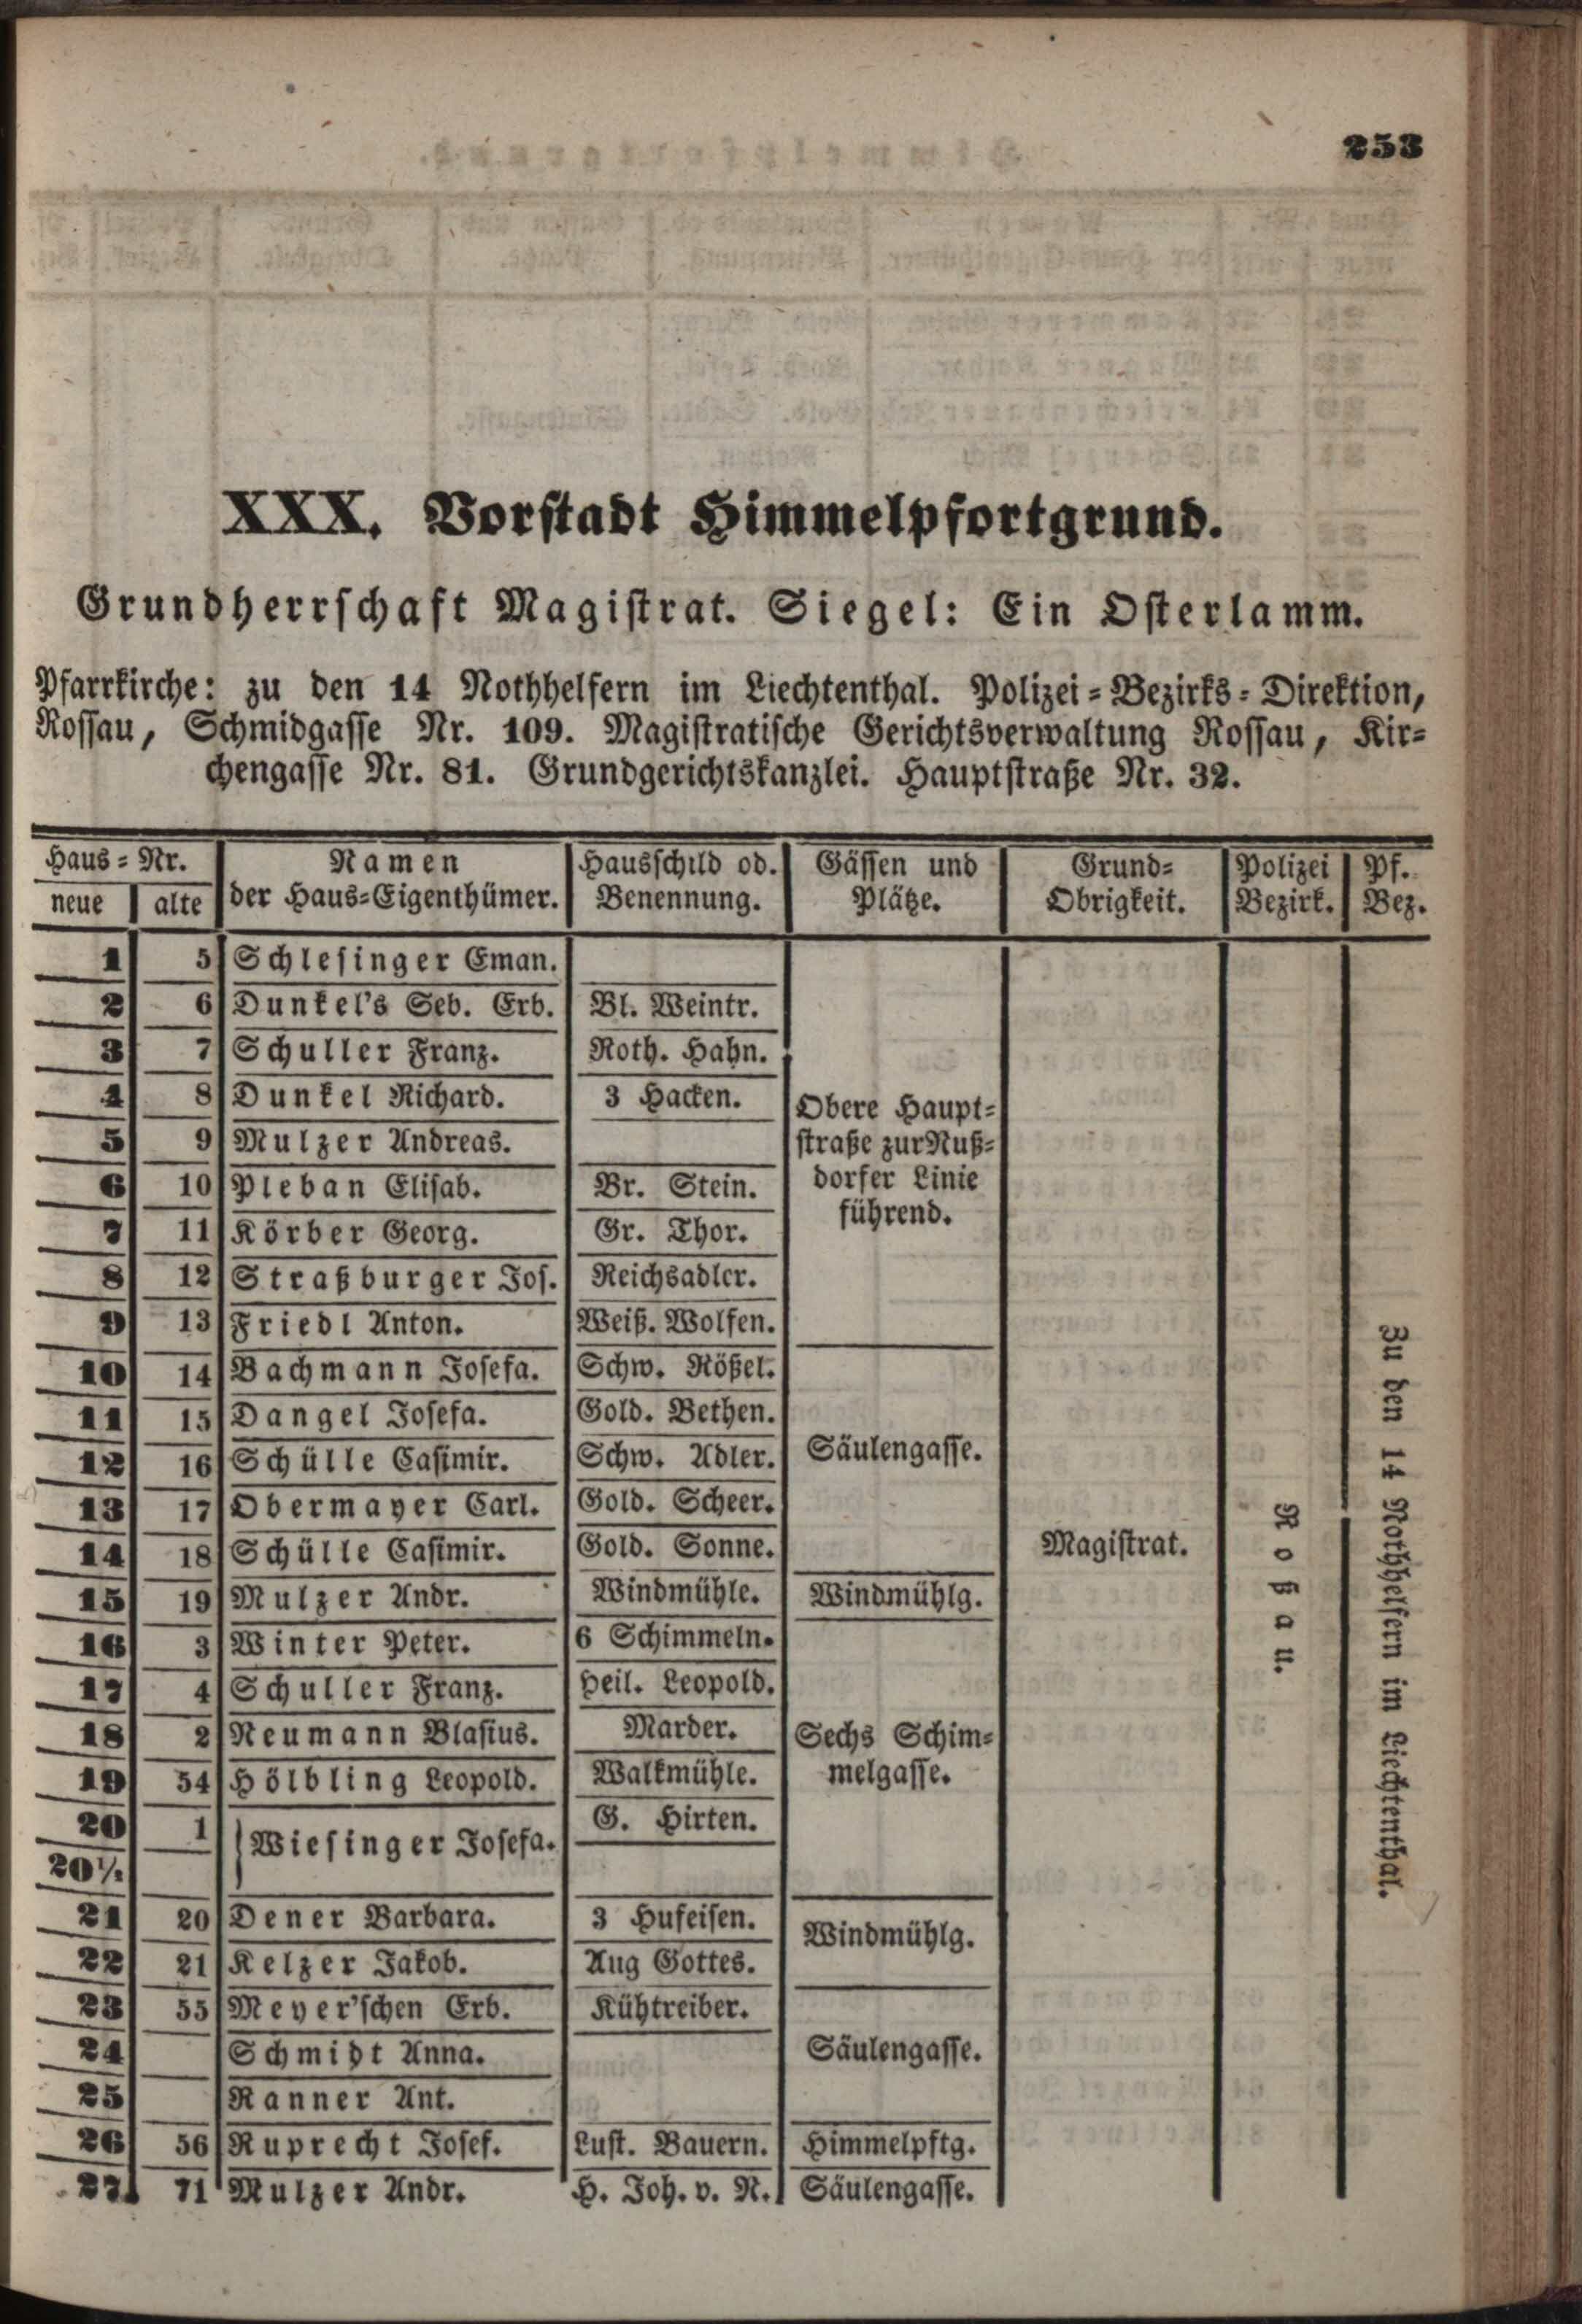 253
XXX. Vorstadt Himmelpfortgrund.
Grundherrschaft Magistrat. Siegel: Ein Osterlamm.
Pfarrkirche: zu den 14 Nothhelfern im Liechtenthal. Polizei-Bezirks-Direktion,
Rossau, Schmidgasse Nr. 109. Magistratische Gerichtsverwaltung Rossau, Kir-
chengasse Nr. 81. Grundgerichtskanzlei. Hauptstraße Nr. 32.
Haus-Nr. Namen Hausschild od. Gässen und Grund- Polizei Pf.
neue alte der Haus-Eigenthümer. Benennung. Plätze. Obrigkeit. Bezirk. Bez.
1 5 Schlesinger Eman.
2 6 Dunkel's Seb. Erb. Bl. Weintr.
3 7 Schuller Franz. Roth. Hahn.
4 8 Dunkel Richard. 3 Hacken. Obere Haupt-
5 9 Mulzer Andreas. straße zur Nuß-
6 10 Pleban Elisab. Br. Stein. dorfer Linie
7 11 Körber Georg. Gr. Thor. führend.
8 12 Straßburger Jos. Reichsadler.
9 13 Friedl Anton. Weiß. Wolfen.
10 14 Bachmann Josefa. Schw. Rößel.
11 15 Dangel Josefa. Gold. Bethen.
12 16 Schülle Casimir. Schw. Adler. Säulengasse.
13 17 Obermayer Carl. Gold. Scheer.
14 18 Schülle Casimir. Gold. Sonne. Magistrat.
15 19 Mulzer Andr. Windmühle. Windmühlg.
16 3 Winter Peter. 6 Schimmeln.
17 4 Schuller Franz. Heil. Leopold.
18 2 Neumann Blasius. Marder. Sechs Schim-
19 54 Hölbling Leopold. Walkmühle. melgasse.
20 1 Wiesinger Josefa. G. Hirten.
20½
21 20 Dener Barbara. 3 Hufeisen. Windmühlg.
22 21 Kelzer Jakob. Aug Gottes.
23 55 Meyer'schen Erb. Kühtreiber.
24 Schmidt Anna. Säulengasse.
25 Ranner Ant.
26 56 Ruprecht Josef. Lust. Bauern. Himmelpftg.
27 71 Mulzer Andr. H. Joh. v. N. Säulengasse.
Roßau.
Zu den 14 Nothhelfern im Liechtenthal.